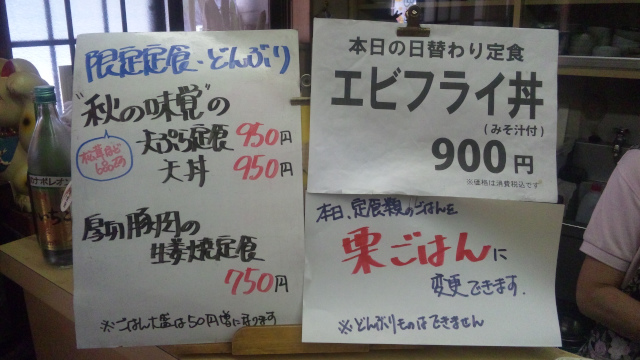 限定定食・どんぶり
"秋の味覚"の
天ぷら定食 950円
天丼 950円
松茸など
厚切豚肉の
生姜焼定食
750円
※ごはん大盛は50円増になります
本日の日替わり定食
エビフライ丼
(みそ汁付)
900円
※価格は消費税込です
本日、定食類のごはんを
栗ごはんに
変更できます.
※どんぶりものはできません